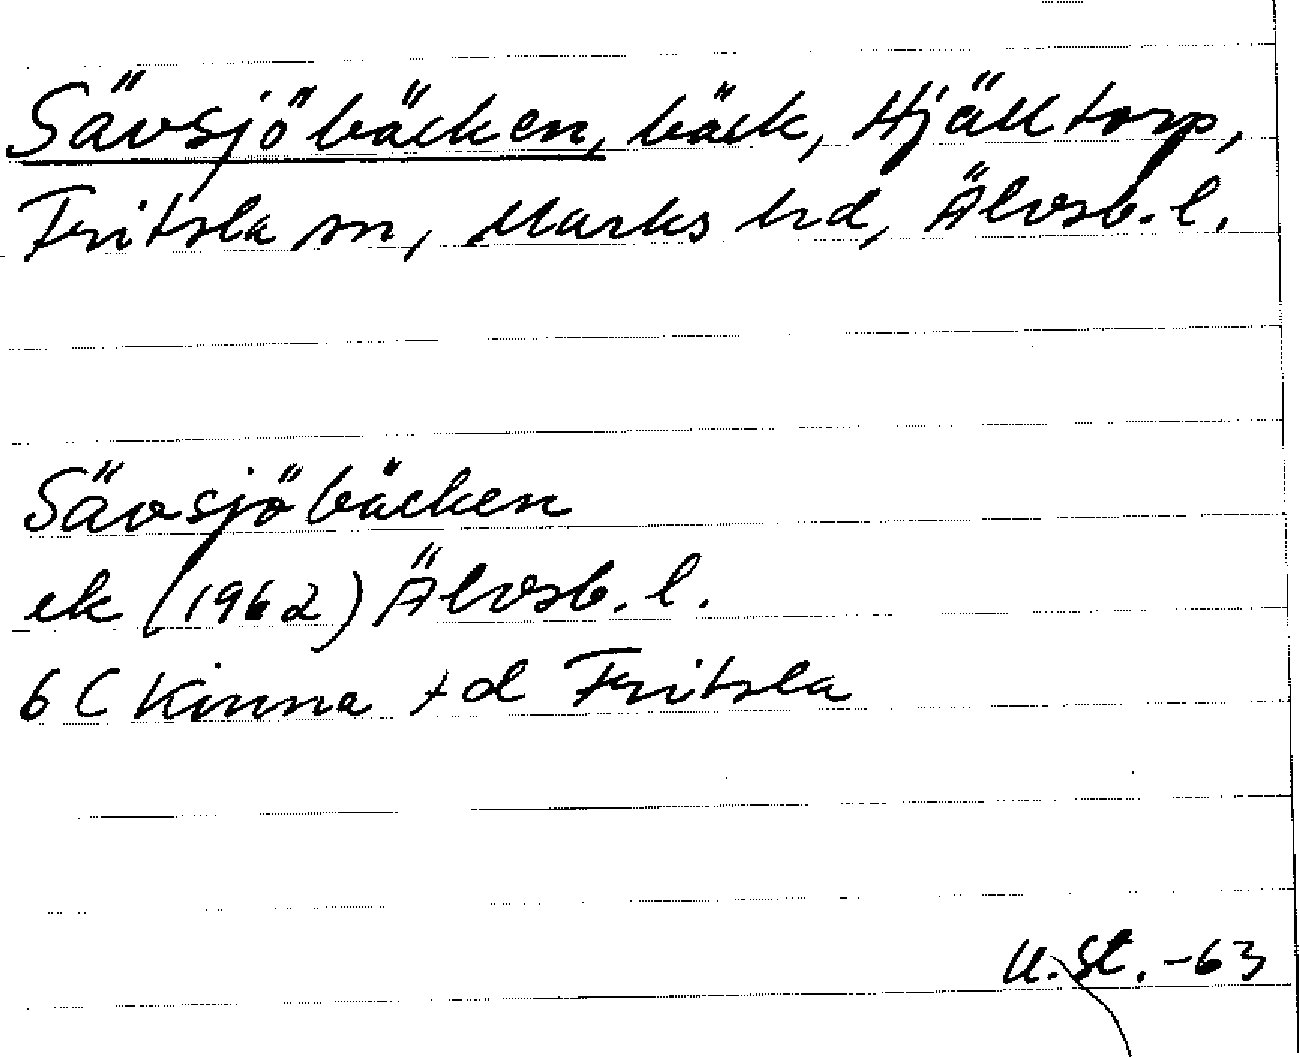 Sävsjöbäcken, bäck, Hjälltorp,
Fritsla sn, Marks hd, Älvsb. l.
Sävsjöbäcken
ek (1962) Älvsb. l.
6 C Kinna td Fritsla
U. St. -63